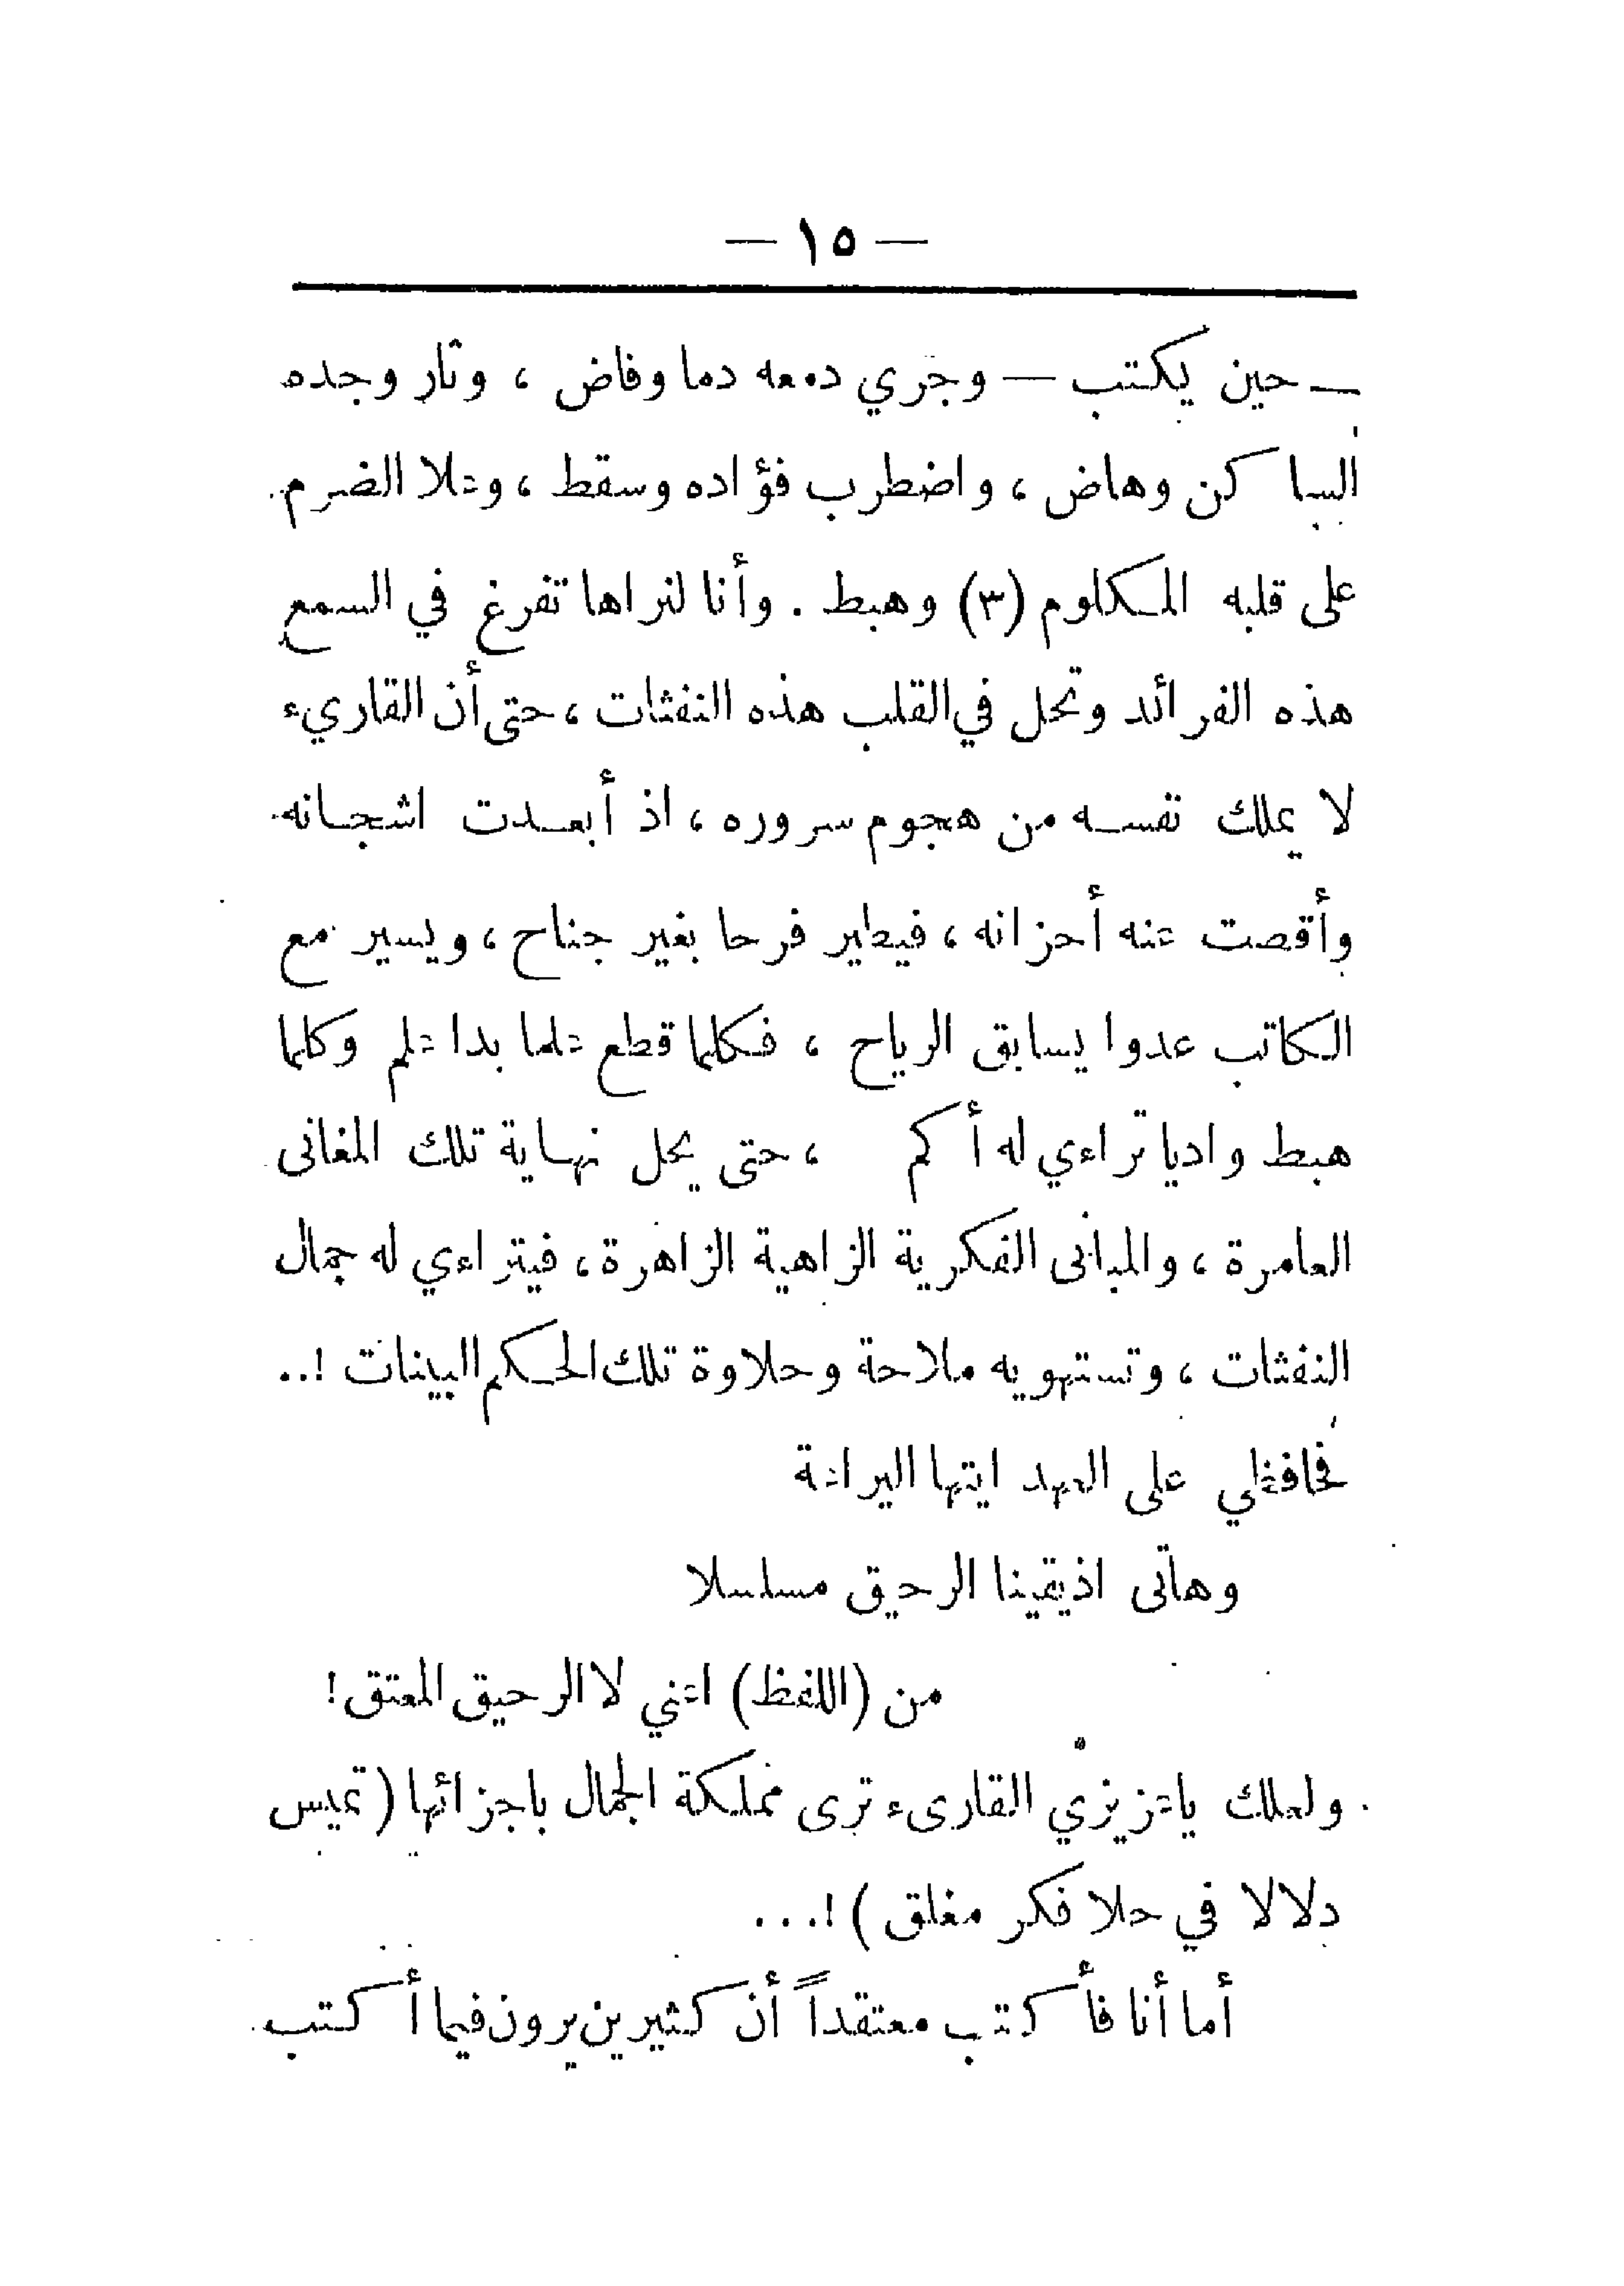 — ١٥ —
— حين يكتب — وجري دمعه دما وفاض ، وثار وجده
الساكن وهاض ، واضطرب فؤاده وسقط ، وعلا الضرم
على قلبه المكلوم (٣) وهبط . وأنا لنراها تفرغ في السمع
هذه الفرائد وتحل في القلب هذه النفثات ، حتى أن القاريء
لا يملك نفسه من هجوم سروره ، اذ أبعدت اشجانه
وأقصت عنه أحزانه ، فيطير فرحا بغير جناح ، ويسير مع
الكاتب عدوا يسابق الرياح ، فكلما قطع علما بدا علم وكلما
هبط واديا تراءي له أكم ، حتى يحل نهاية تلك المغانى
العامرة ، والمبانى الفكرية الزاهية الزاهرة ، فيتراءي له جمال
النفثات ، وتستهويه ملاحة وحلاوة تلك الحكم البينات !..
فحافظي على العهد ايتها اليراعة
وهاتى اذيقينا الرحيق مسلسلا
من (اللفظ) اعني لا الرحيق المعتق !
ولعلك ياعزيزي القارىء ترى مملكة الجمال باجزائها ( تميس
دلالا في حلا فكر مغلق ) !...
أما أنا فأكتب معتقداً أن كثيرين يرون فيما أكتب